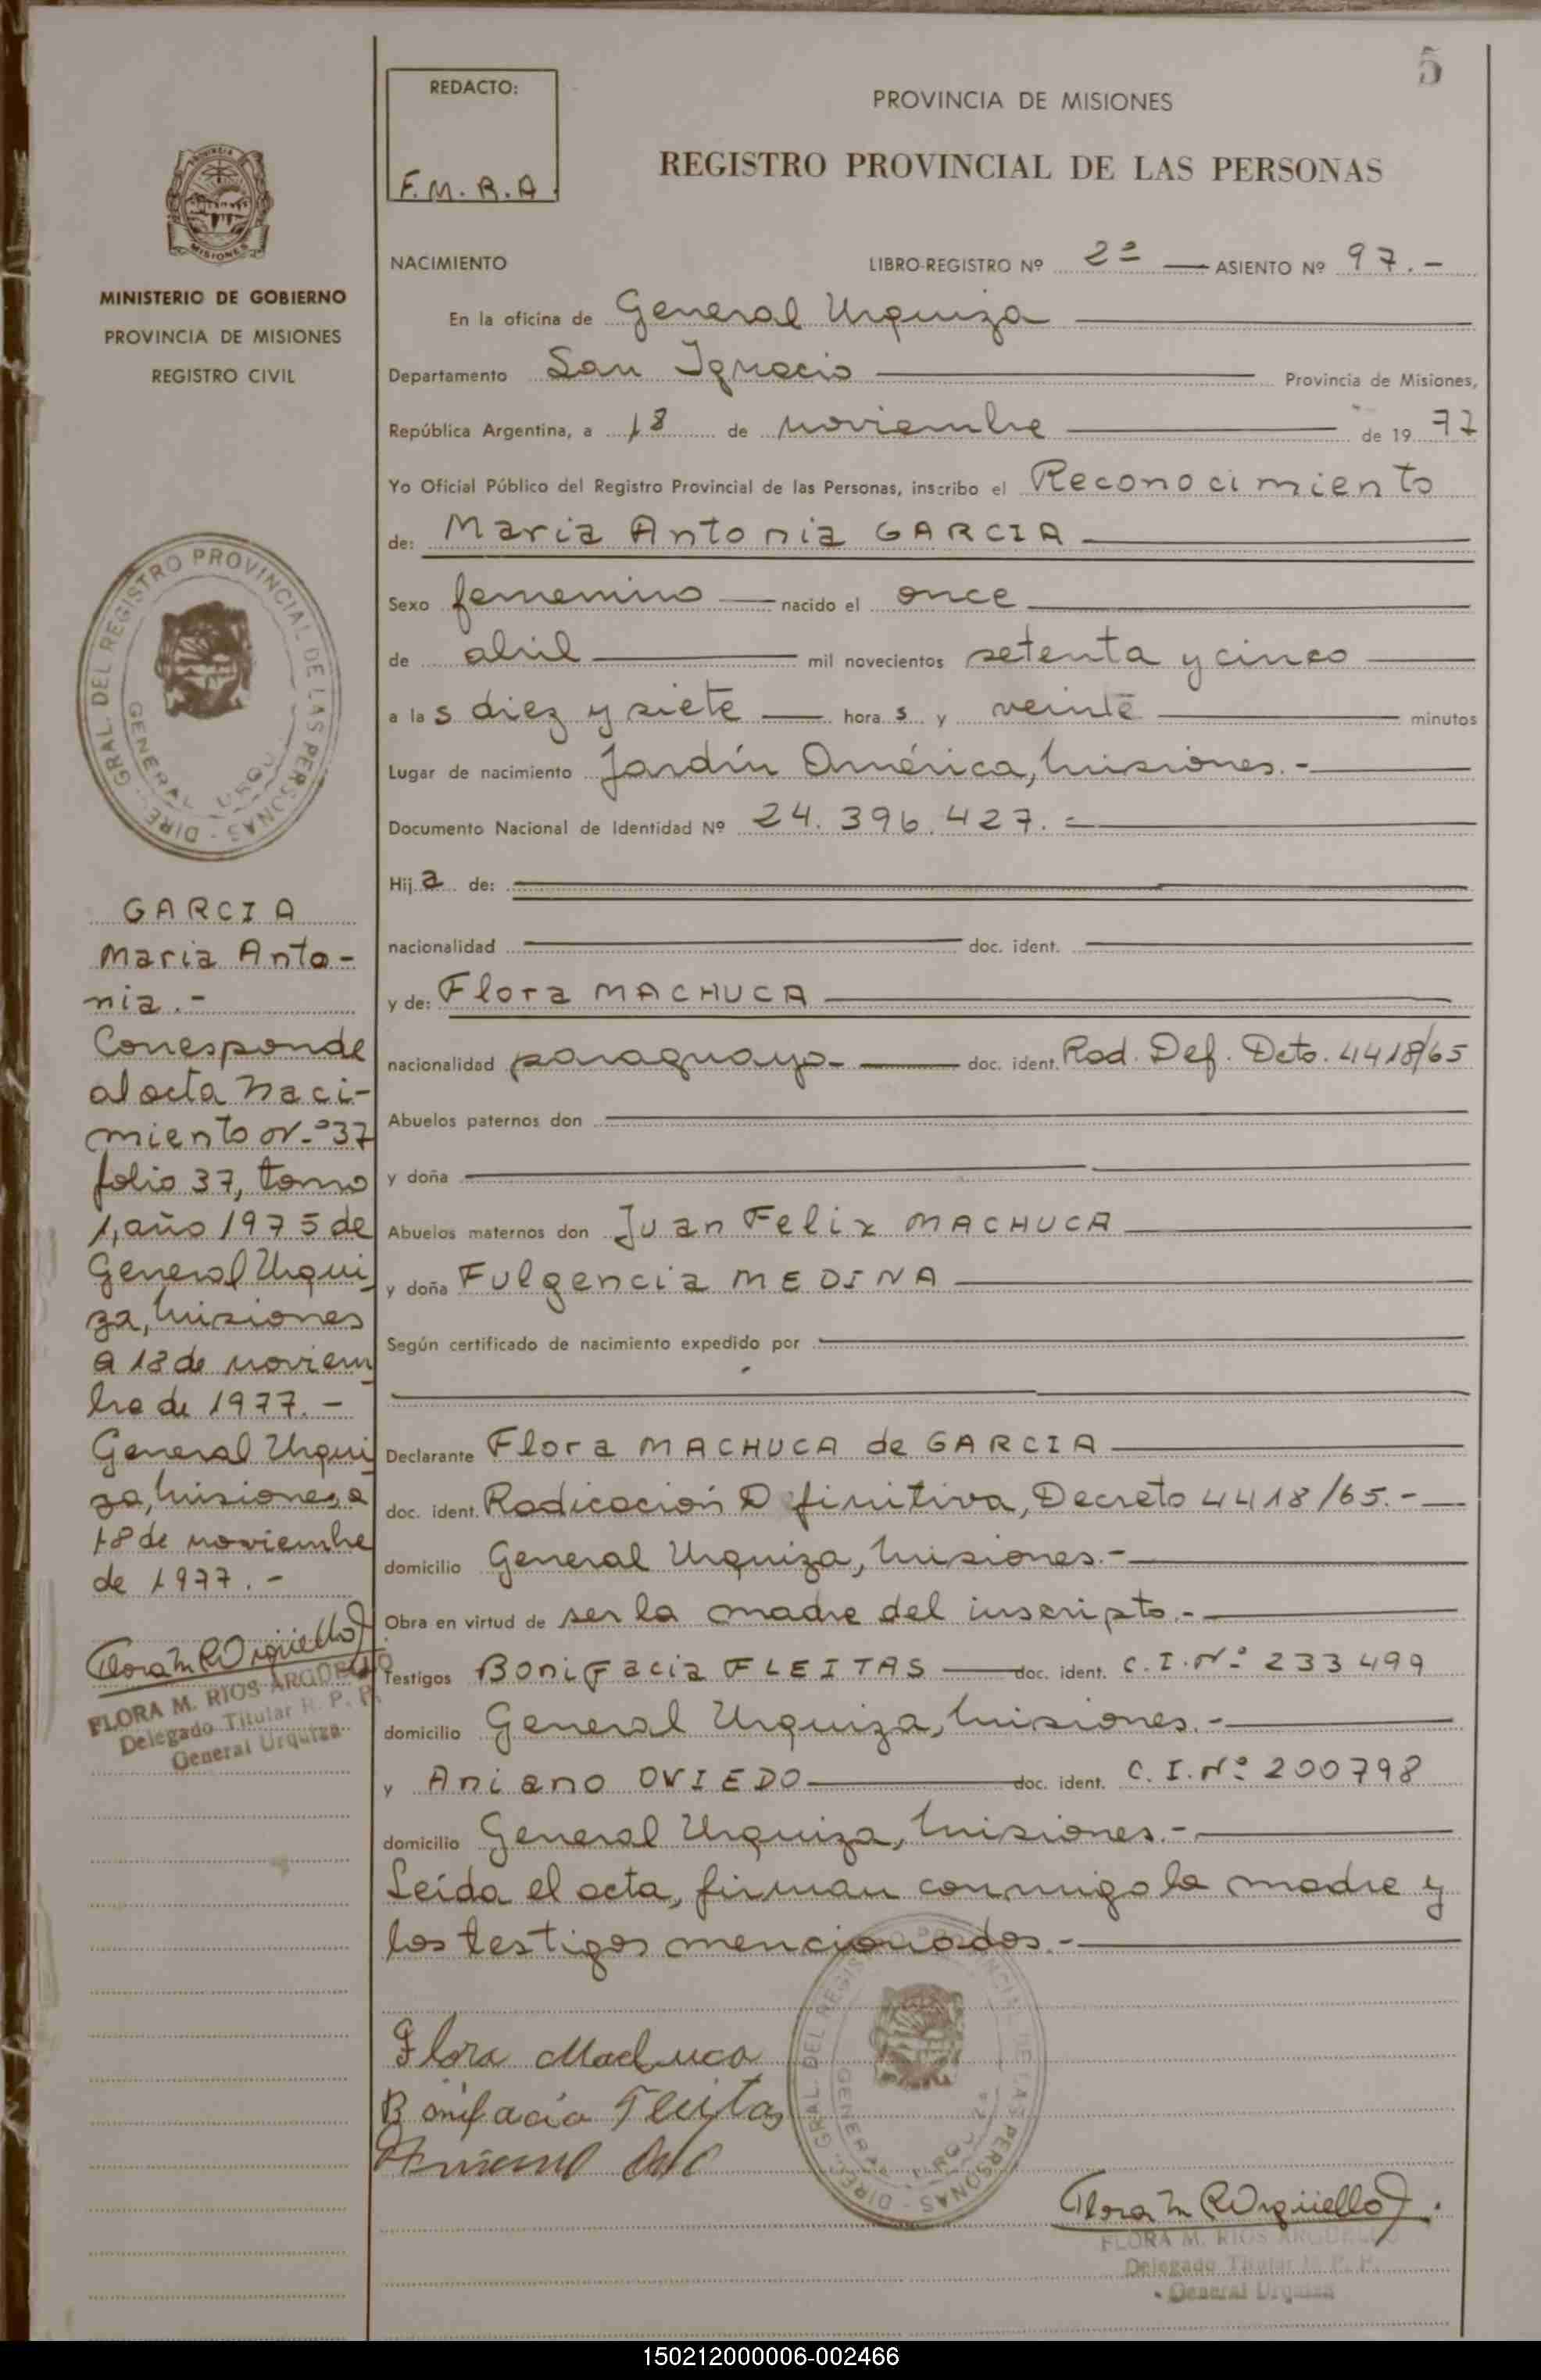 5
REDACTO:
F.M.R.A.
PROVINCIA DE MISIONES
REGISTRO PROVINCIAL DE LAS PERSONAS
PROVINCIA
MISIONES
MINISTERIO DE GOBIERNO
PROVINCIA DE MISIONES
REGISTRO CIVIL
NACIMIENTO LIBRO-REGISTRO Nº 2º — ASIENTO Nº 97.-
En la oficina de General Urquiza
Departamento San Ignacio Provincia de Misiones,
República Argentina, a 18 de noviembre de 1977
Yo Oficial Público del Registro Provincial de las Personas, inscribo el Reconocimiento
de: Maria Antonia GARCIA
Sexo femenino — nacido el once
de abril mil novecientos setenta y cinco
a las diez y siete — horas y veinte minutos
Lugar de nacimiento Jardín América, Misiones.-
Documento Nacional de Identidad Nº 24.396.427.=
Hija de:
nacionalidad doc. ident.
y de: Flora MACHUCA
nacionalidad paraguaya — doc. ident. Rad. Def. Dcto. 4418/65
Abuelos paternos don
y doña
Abuelos maternos don Juan Felix MACHUCA
y doña Fulgencia MEDINA
Según certificado de nacimiento expedido por
Declarante Flora MACHUCA de GARCIA
doc. ident. Radicación D finitiva, Decreto 4418/65.-
domicilio General Urquiza, Misiones.-
Obra en virtud de ser la madre del inscripto.-
Testigos Bonifacia FLEITAS — doc. ident. C.I.Nº 233499
domicilio General Urquiza, Misiones.-
y Aniano OVIEDO — doc. ident. C.I.Nº 200798
domicilio General Urquiza, Misiones.-
Leída el acta, firman conmigo la madre y
los testigos mencionados.-
Flora Machuca
Bonifacia Fleitas
Flora M R Argüello
FLORA M. RIOS ARGUELLO
Delegado Titular R. P. P.
General Urquiza
DIREC. GRAL. DEL REGISTRO PROVINCIAL DE LAS PERSONAS
GENERAL URQUIZA
DIREC. GRAL. DEL REGISTRO PROVINCIAL DE LAS PERSONAS
GENERAL URQU
GARCIA
Maria Anto-
nia.-
Corresponde
al acta naci-
miento Nº 37
folio 37, tomo
1, año 1975 de
General Urqui
za, Misiones
a 18 de noviem
bre de 1977.-
General Urqui
za, Misiones, a
18 de noviembre
de 1977.-
Flora M R Argüello
FLORA M. RIOS ARGUELLO
Delegado Titular R. P. P.
General Urquiza
150212000006-002466